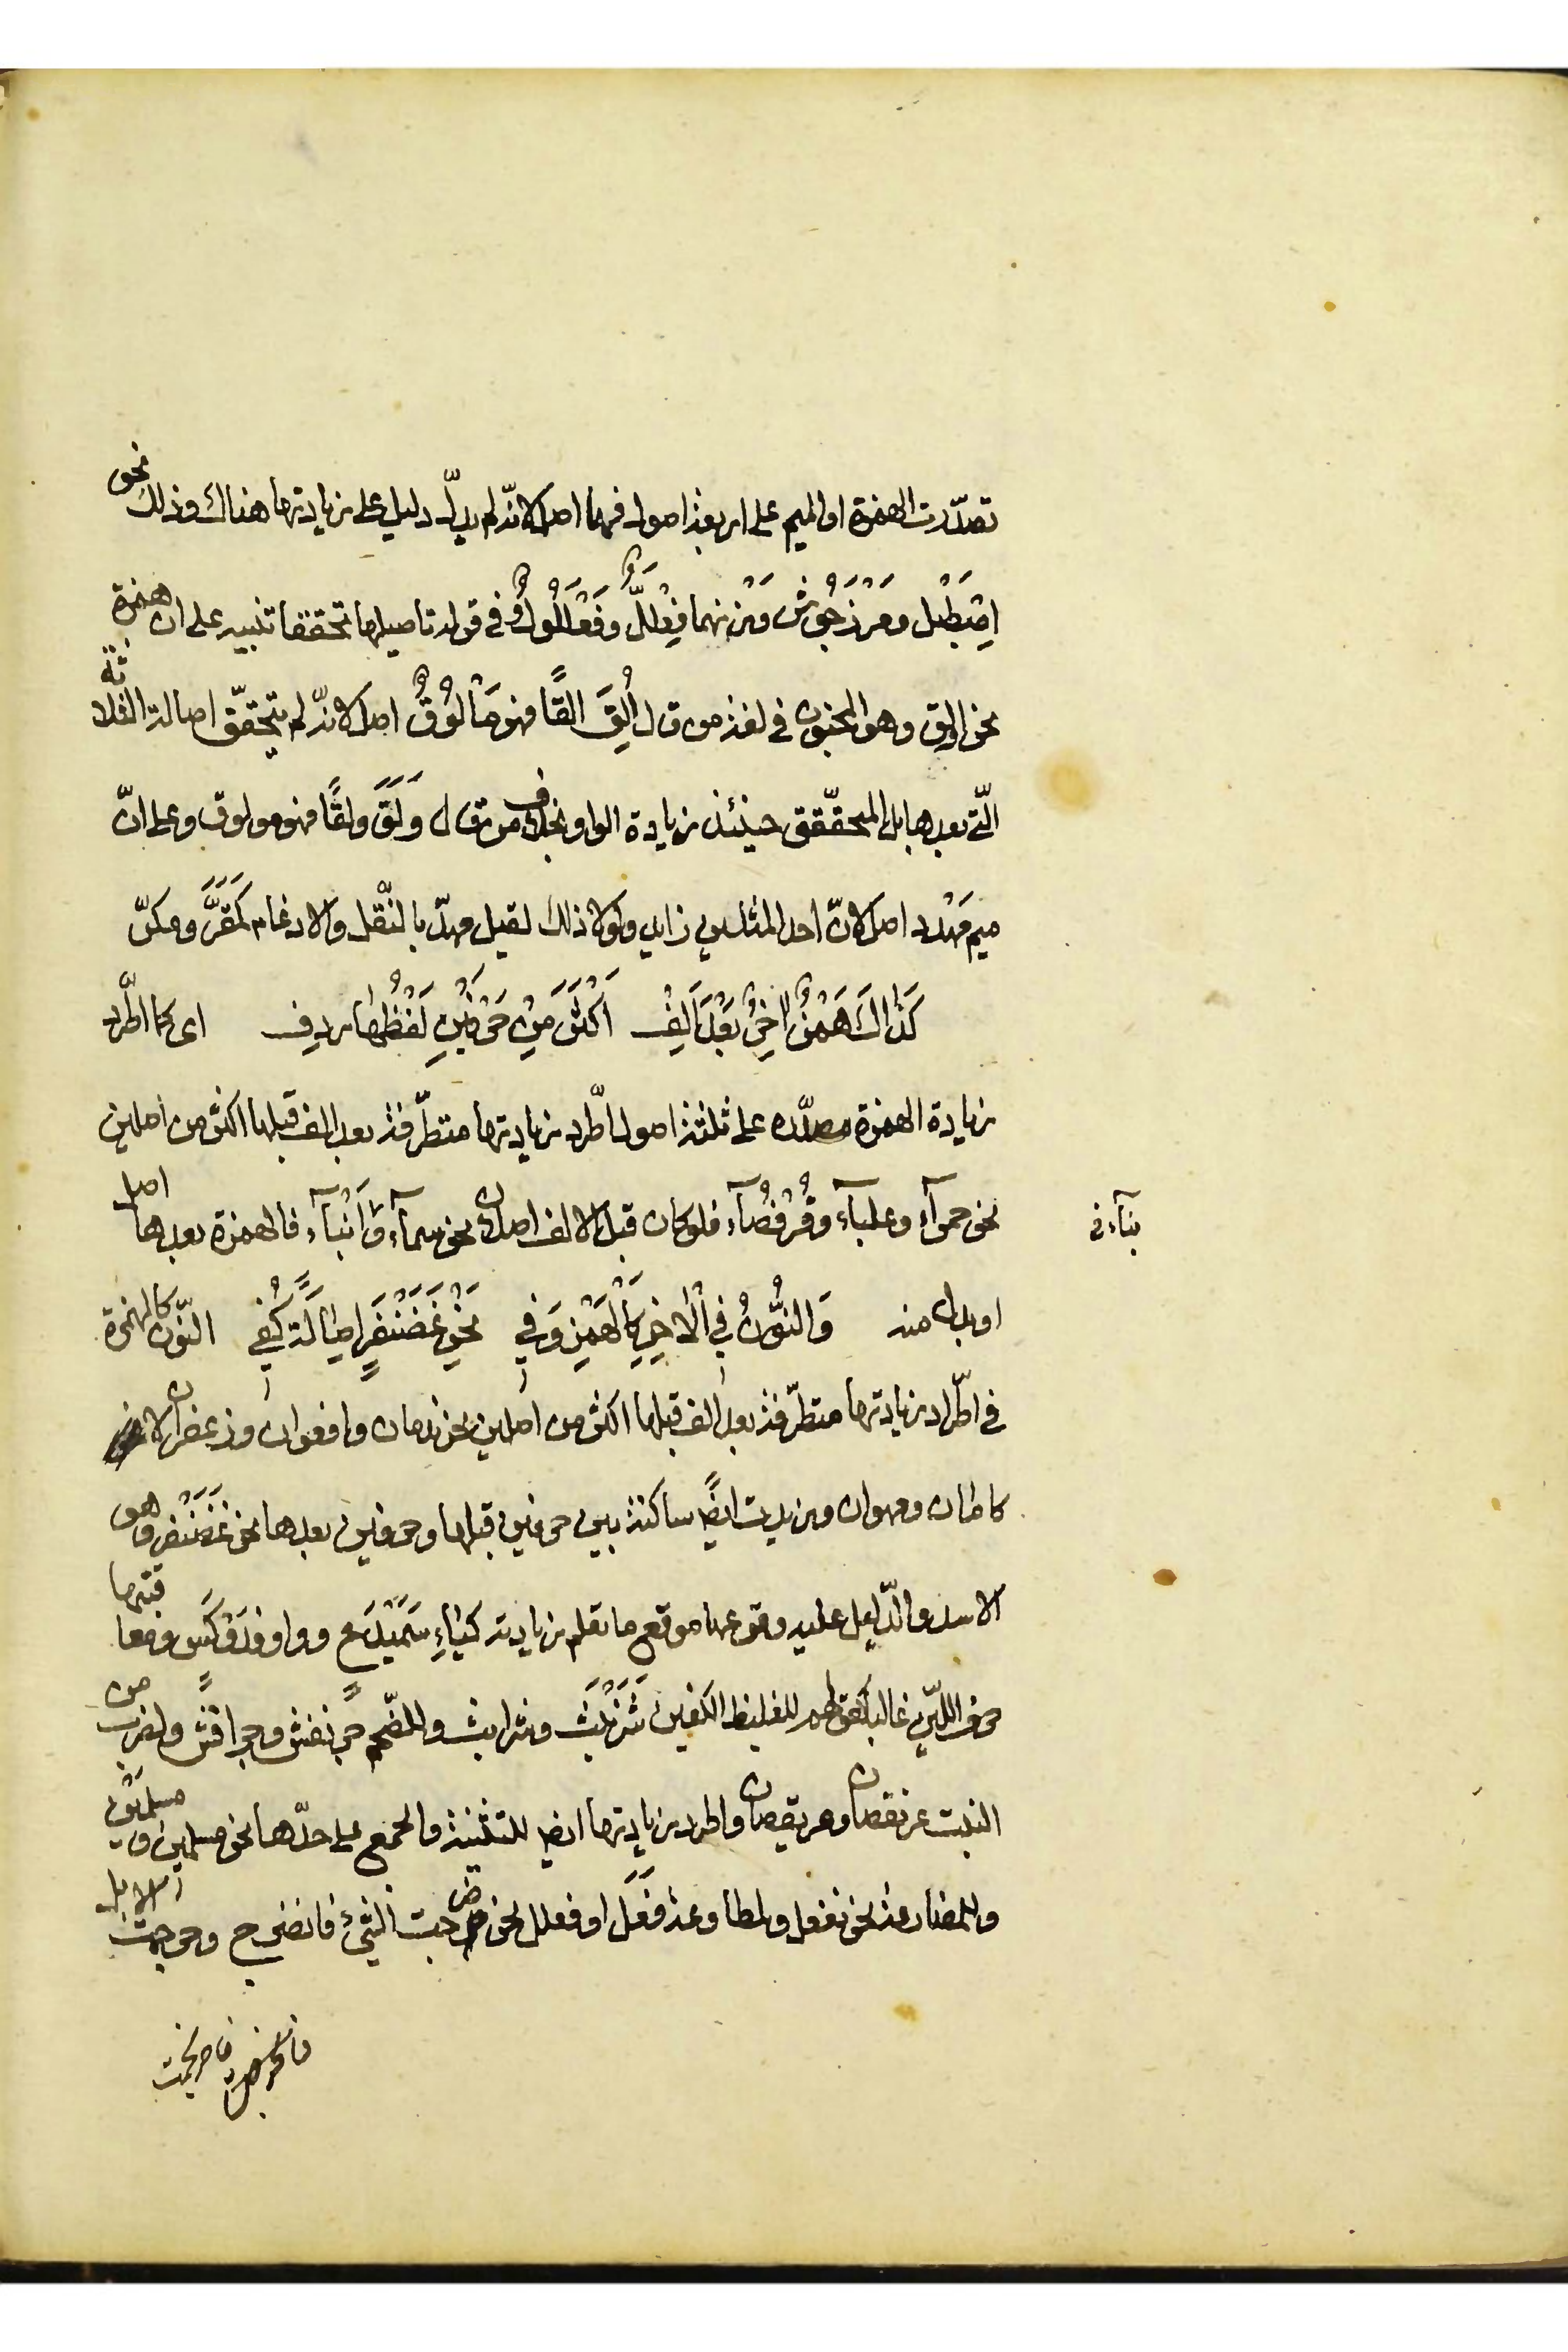 تصدّرت الهمزة او الميم على اربعة اصول فهما اصل لانّه لم يدلّ دليل على زيادتها هناك وذلك نحو
اِصْطَبْل ومَرْزَجُوش وَزنهما فِعْلَلٌّ وفَعْلَلُولٌ وفي قوله تاصيلها تحققا تنبيه على ان همزة
نحو اولق وهو الجنون في لغة من قال اُلِقَ القًا فهو مَألُوقٌ اصل لانّه لم يتحقّق اصالة الثلاثة
الّتي بعدها بل المتحقّق حينئذ زيادة الواو بخلاف من قال وَلَقَ ولقًا فهو مولوق وعلى انّ
ميم مَهْدد اصل لانّ احد المثلين زايد ولولا ذلك لقيل مهدّ بالنّقل والادغام كمَقَرَّ ومكرّ
كَذَاكَ هَمْزٌ اٰخِرٌ بَعْدَ اَلِفْ اَكْثَرَ مِنْ حَرْفَيْنِ لَفْظُهَا ردِف اى كما اطّرد
زيادة الهمزة مصدّره على ثلثة اصول اطّرد زيادتها متطرّفة بعد الف قبلها اكثر من اصلين
نحو حمرآء وعلبآء وقُرْفُصآء فلو كان قبل الالف اصلان نحو سمآء وَاَنْبآء فالهمزة بعدها اصل
بنآء في
او بدل منه وَالنُّونُ فِي الْاٰخِرِ كَالْهَمْزِ وَفي نَحْوِ غَضَنْفَرٍ اصَالَةً كُفي النّون كالهمزة
في اطّراد زيادتها متطرّفة بعد الف قبلها اكثر من اصلين نحو ندمان وافعوان وزعفران لا في
كامان ومهوان وزيدت ايضًا ساكنة بين حرفين قبلها وحرفين بعدها نحو غَضَنْفر وهو
الاسد والدّليل عليه وقوعها موقع ما تقدم زيادته كيَاءِ سَمَيْدَع وواو فَدَوْكَس ومعاقبتها
حرف اللّين غالبا كقولهم للغليظ الكفين شَرَنْبَث وشرابث وللضّخم جرنفش وجرافش ولضرب من
النبت عرنقصان وعريقصان واطرد زيادتها ايضا للتثنية والجمع على حدّها نحو مسلمين ومسلمَيْن
وللمضارعة نحو نفعل ولمطاوعة فَعَل او فعلل نحو ضرجت الشّيء فانضرج وحرجمت الابل
فاحرنجمت